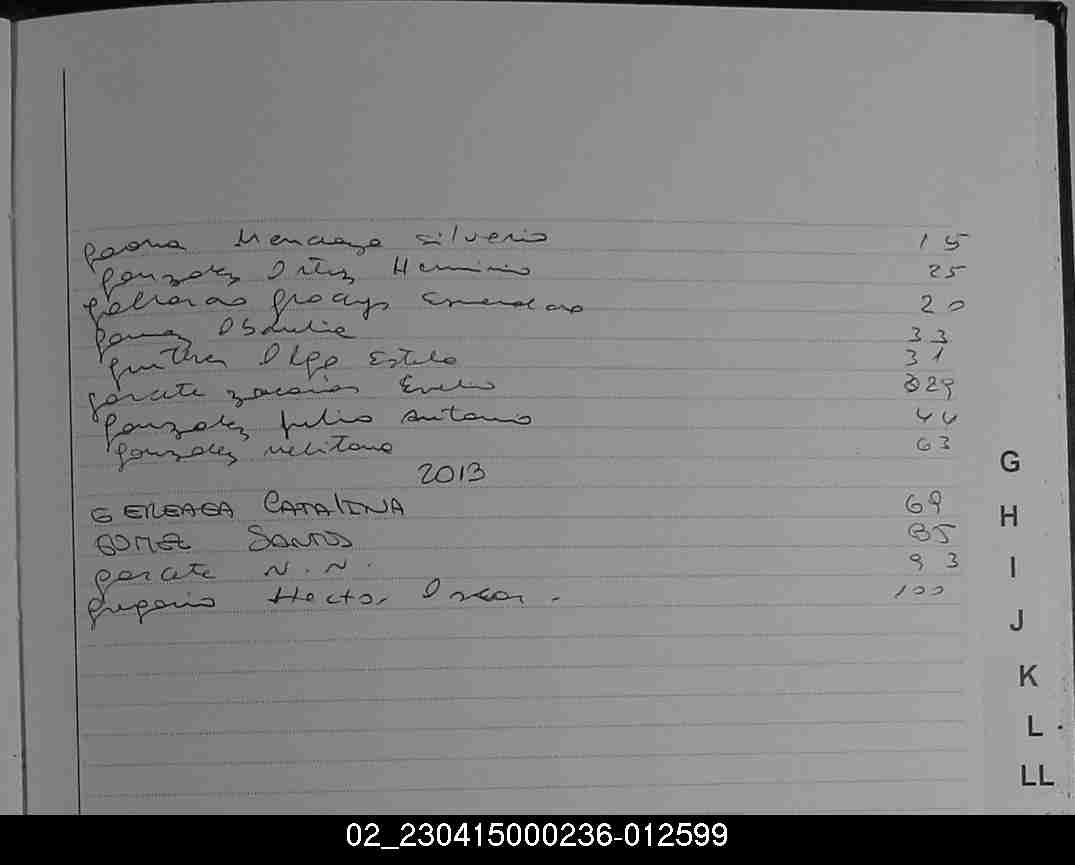 gaona Mendoza Silverio 15
gonzalez Ortiz Herminio 25
Esmeralda 20
Obdulia 33
Olga Estela 31
garate zacarias Evelio 29
gonzalez julio Antonio 44
gonzalez melitona 63
2013
GEREAGA CATALINA 69
GOMEZ SANTOS 85
garate N.N. 93
gregorio Hector Oscar. 100
G
H
I
J
K
L
LL
02_230415000236-012599